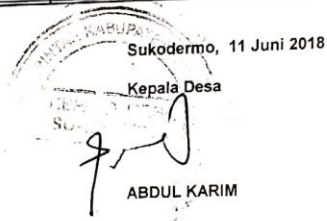 KABUPA
Sukodermo, 11 Juni 2018
Kepala Desa
ABDUL KARIM